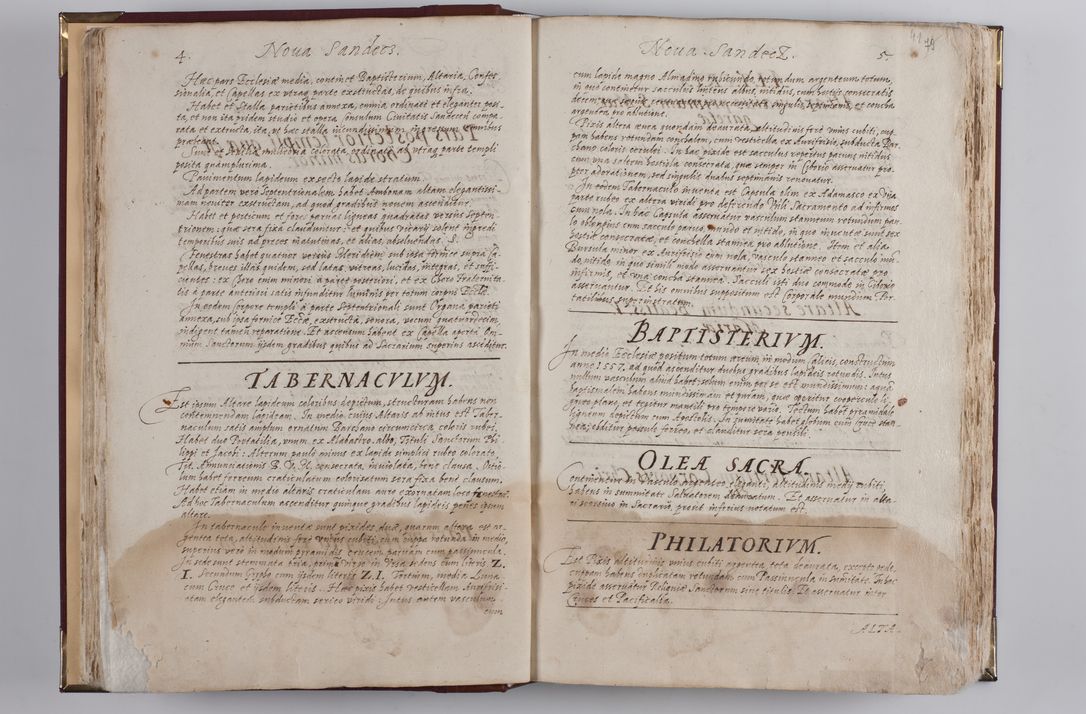 4. Noua Sandecz.
Hæc pars Ecclesiæ media, continet Baptisterium, Altaria, Confes
sionalia, et Capellas ex utraq parte exstructas, de quibus infra.
Habet et Stalla parietibus annexa, omnia ordinatè et eleganter posi-
ta, et non ita pridem studio et opera Consulum Ciuitatis Sandecen compa-
rata et extructa, ita, ut hæc stalla iucundissimum ingressum omnibus
præbeant.
Sunt et Scabella multicoria colorata, ordinatè ex utraq parte templi
posita quamplurima.
Pauimentum lapideum ex secto lapide stratum.
Ad partem vero Septentrionalem habet Ambonam altam elegantissi-
mam nouiter exstructam, ad quod gradibus nouem ascenditur.
Habet et porticum et fores parias ligneas quadratas versus Septem
trionem: quæ sera fixa clauduntur: et quibus vicarij solent ingredi
temporibus suis ad preces matutinas, et alias absoluendas. S.
Fenestras habet quatuor versus Meridiem sub ipsa fornice supra Ca-
pellas, breues illas quidem, sed latas, vitreas, lucidas, integras, et suffi-
cientes: ex Choro enim minori à parte posteriori, et ex Choro Fraternita-
tis à parte anteriori satis infunditur luminis per totum corpus Eccl.
In eodem corpore templi à parte Septentrionali sunt Organa parieti
annexa, sub ipsa fornice Eccl. exstructa, sonora, vocum quatuordecim,
indigent tamen reparatione. Et ascensum habent ex Capella aperta Om-
nium Sanctorum ijsdem gradibus quibus ad Sacrarium superius ascēditur.
TABERNACVLVM.
Est ipsum Altare lapideum coloribus depictum, structuram habens non
contemnendam lapideam. In medio cuius Altaris ab intus est Taber-
naculum satis amplum ornatum Barcano circumcirca coloris rubri.
Habet duo Portatilia, vnum ex Alabastro albo, Tituli Sanctorum Phi
lippi et Jacobi: Alterum paulò minus ex lapide simplici rubro colorato,
Tit. Annunciationis B. V. M. consecrata, inuiolata, benè clausa. Ostio-
lum habet ferreum craticulatum coloratum sera fixa benè clausum.
Habet etiam in medio altaris craticulam auro exornatam loco fenestræ.
Ad hoc Tabernaculum ascenditur quinque gradibus lapideis penes ipsum
altare.
In tabernaculo inuentæ sunt pixides duæ, quarum altera est ar-
gentea tota, altitudinis ferè vnius cubiti, cum cuppa rotunda in medio,
superius verò in modum pyramidis crucem paruam cum passimcula.
In sede sunt stemmata tria, primū virgo in Vrsa sedens cum literis Z.
I. Secundum Gryphi cum ijsdem literis Z. I. Tertium, media Luna
cum Cruce et ijsdem literis. Hæc pixis habet vesticellam Aurifrisi-
atam elegantem subductam serico viridi. Intus autem vasculum,
cum
Noua Sandecz. 5.
cum lapide magno Almadino rubicundo, rotundum argenteum totum,
in quo continetur sacculus linteus albus, nitidus, cum hostijs consecratis
argentea pro ablutione.
Pixis altera ærea quondam deaurata, altitudinis ferè vnius cubiti, cup-
pam habens rotundam conchalem, cum vesticella ex Aurifrisio, subducta Bar-
chano coloris cerulei. In hac pixide est sacculus repertus parum nitidus
cum vna saltem hostiola consecrata, quæ semper in Ciborio asseruatur pro-
pter adorationem, sed singulis duabus septimanis renouatur.
In eodem Tabernaculo inuenta est Capsula olim ex Adamasco ex vna
parte rubeo ex altera viridi pro deferendo Ven. Sacramento ad infirmos
cum nola. In hac Capsula asseruatur vasculum stanneum rotundum pau-
lo oblongius cum sacculo paruo, mundo et nitido, in quo inuentæ sunt sex
hostiæ consecratæ, et conchella stannea pro ablutione. Item et alia
Bursula minor ex Aurifrisio cum nola, vasculo stanneo et sacculo mū-
do, nitido, in quo simili modo asseruantur sex hostiæ consecratæ pro
infirmis, et vna concha stannea. Sacculi isti duo commodè in Ciborio
asseruantur. Et his omnibus suppositum est Corporale mundum Por-
tatilibus superinstratum.
BAPTISTERIVM.
In medio Ecclesiæ positum totum æreum in modum calicis, constructum
anno 1557. ad quod ascenditur duobus gradibus lapideis rotundis. Intus
nullum vasculum aliud habet: solum enim per se est mundissimum: aquā
baptismalem habens mundissimam et puram, quæ operitur cooperculo li-
gneo plano, et tegitur mantili pro tempore vario. Tectum habet pyramidale
ligneum depictum cum Apostolis. In summitate habet globum cum cruce stan-
nea; additur parulæ fores, et clauditur sera pensili.
OLEA SACRA.
Continentur in Vasculo argenteo eleganti, altitudinis medij cubiti,
habens in summitate Saluatorem deauratum. Et asseruatur in alta-
ri versiuo in Sacrario, prout inferius notatum est.
PHILATORIVM.
Est Pixis altitudinis vnius cubiti argentea tota deaurata, excepto pede,
cuppam habens duplicatam rotundam cum Passiuncula in summitate. In hac
pixide asseruatur Reliquiæ Sanctorum sine titulis. Et asseruatur inter
Cruces et Pacificalia.
ALTA-